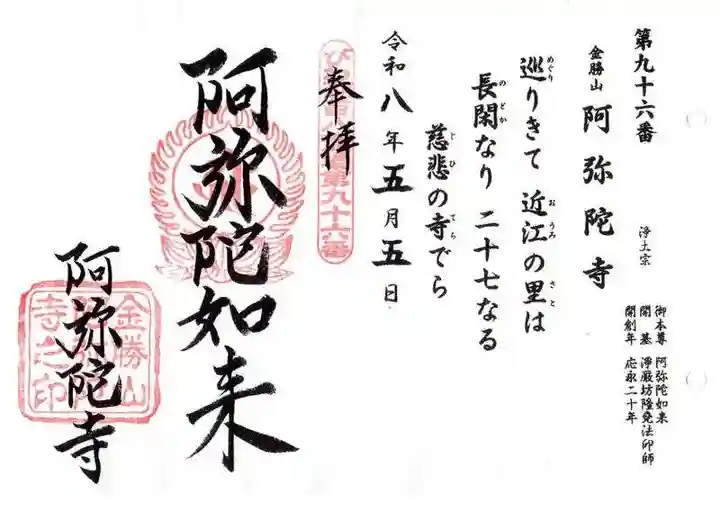 第九十六番
金勝山 阿弥陀寺 浄土宗
御本尊 阿弥陀如来
開基 浄厳坊隆堯法印師
開創年 応永二十年
巡りきて 近江の里は
めぐり おうみ さと
長閑なり 二十七なる
のどか
慈悲の寺でら
じひ てら
令和八年五月五日
奉拝
第九十六番
阿弥陀如来
阿弥陀寺
金勝山
寺之印